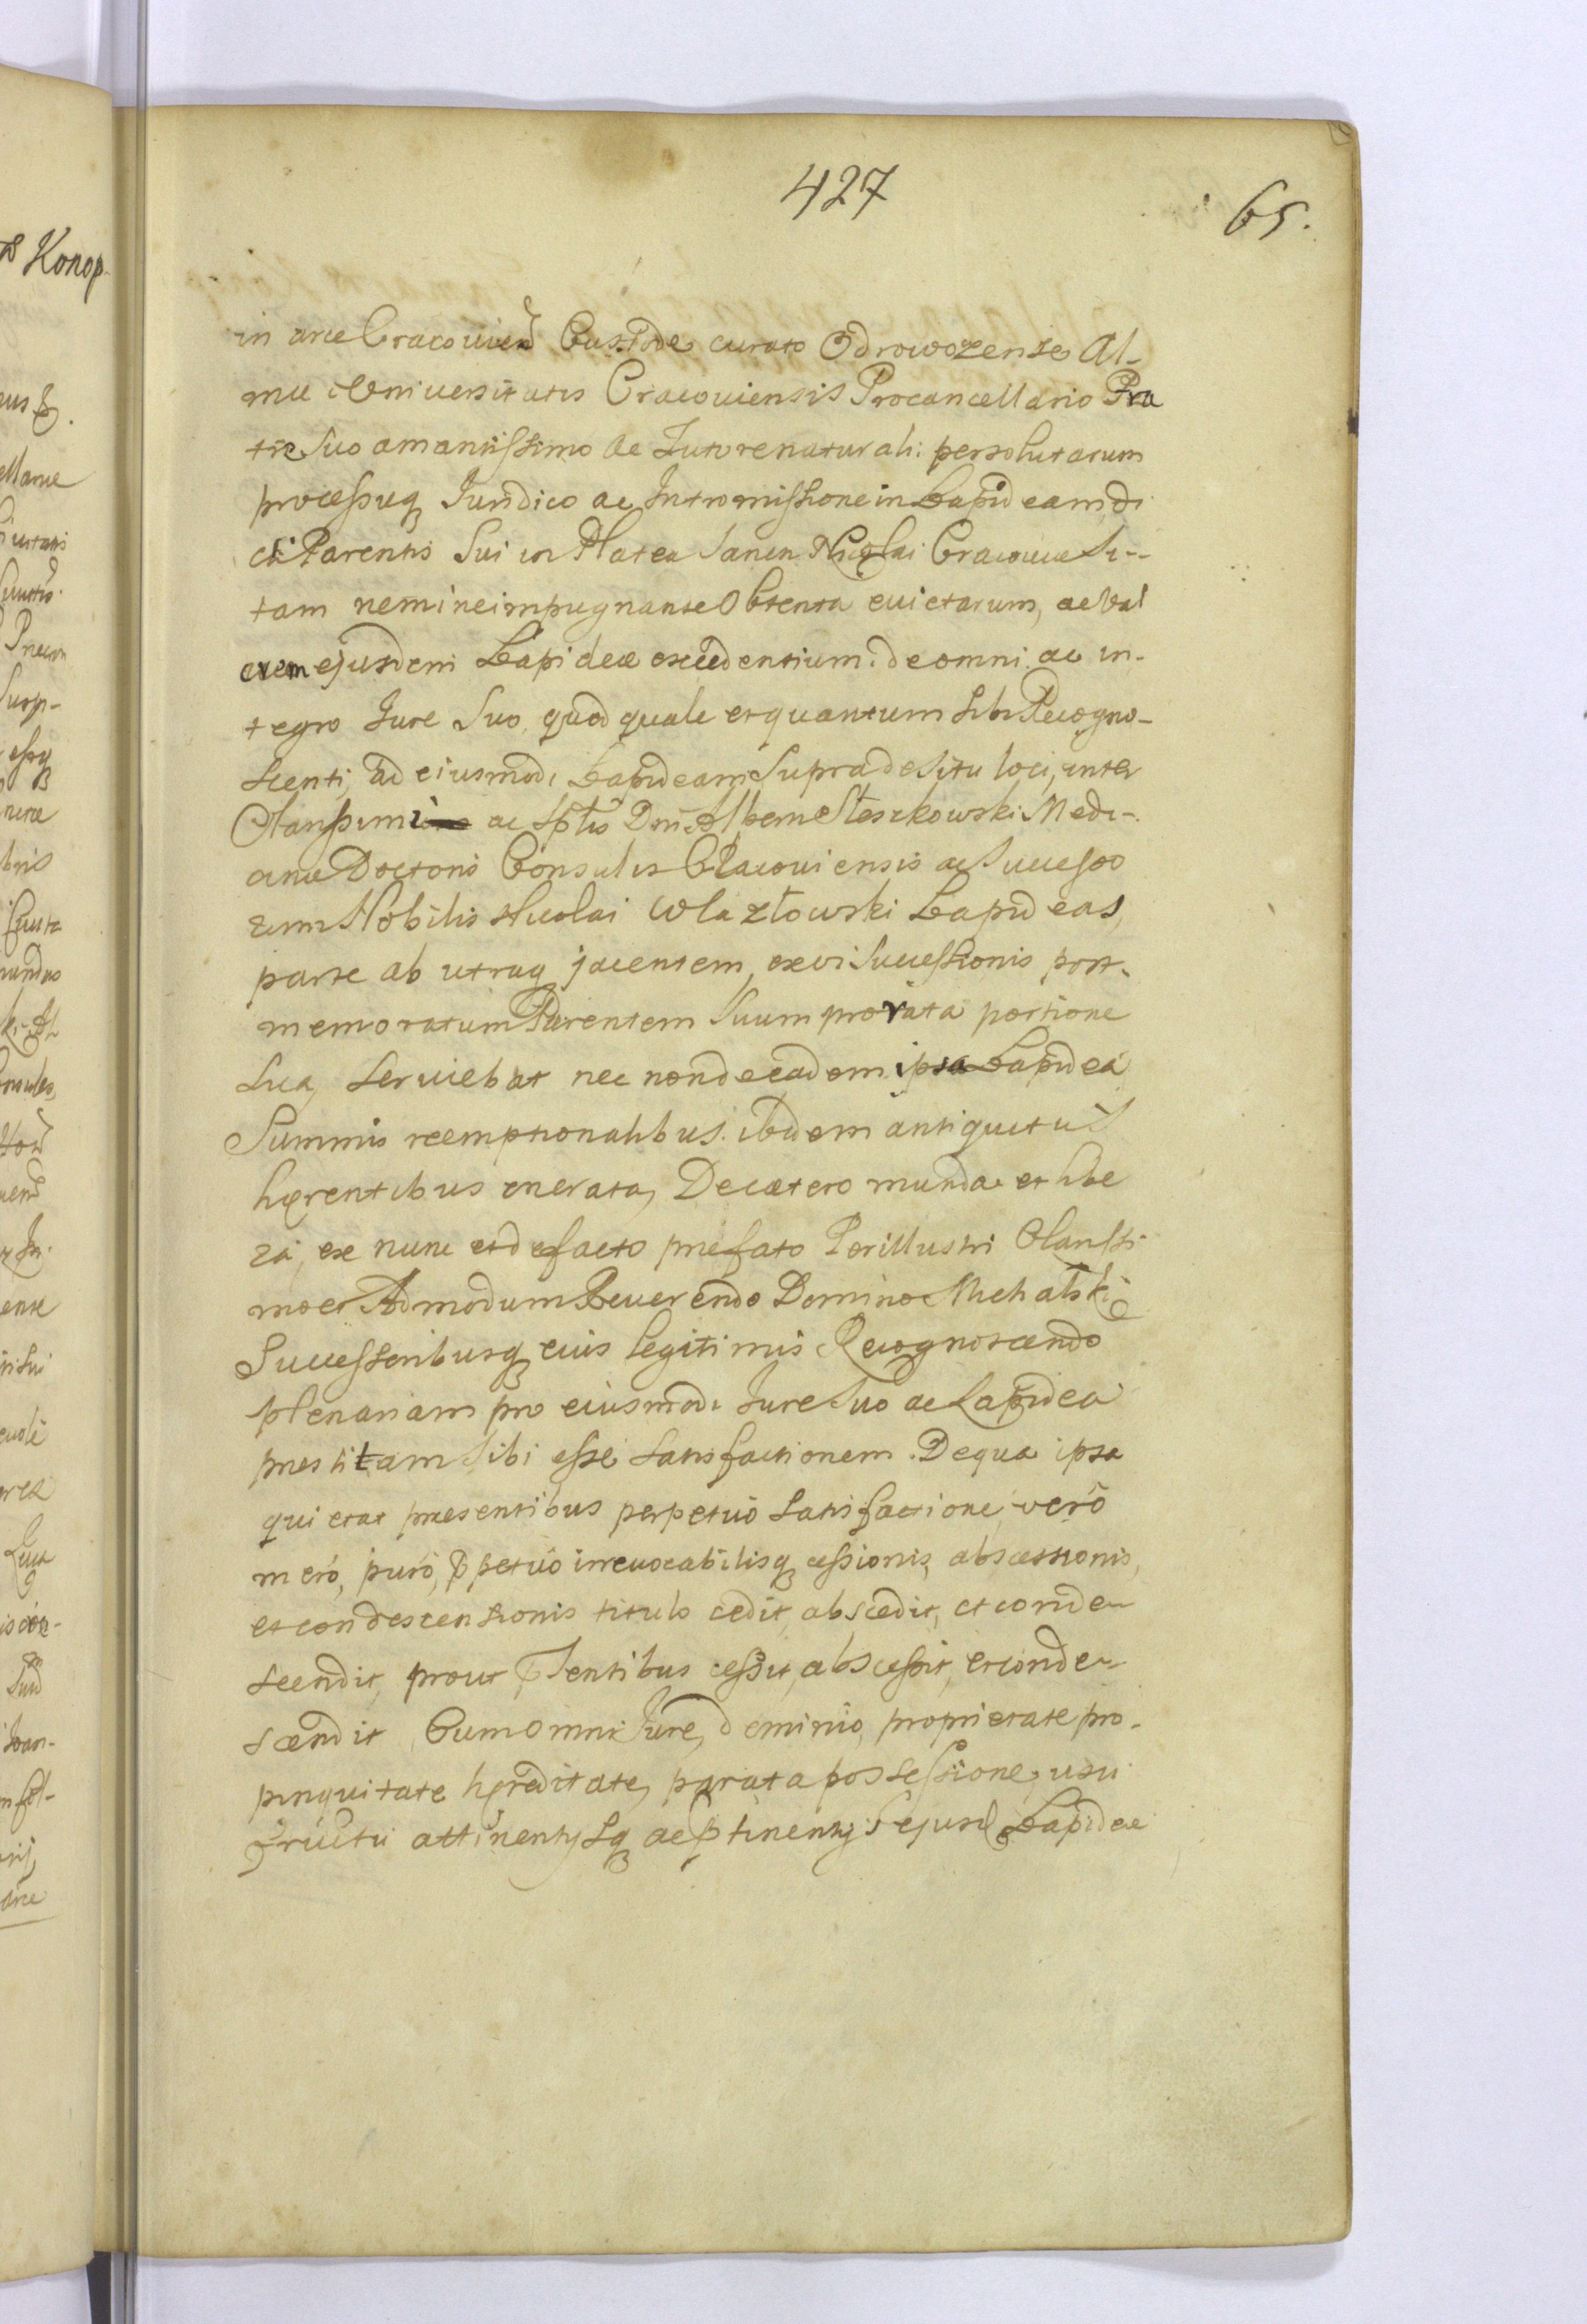 427
65.
in arce Cracovien Custode curato Odrowozense Al-
mae Universitatis Cracoviensis Procancellario Fra
tre Suo amantissimo ac Tutore naturali persolutarum
processuq Juridico ac Intromissione in Lapideam di
cti Parentis Sui in Platea Sancti Nicolai Cracoviae Si-
tam nemine impugnante Obtenta evictarum, ac Val
orem ejusdem Lapideae excedentium. de omni ac in-
tegro Jure Suo, quod quale et quantum Sibi Recogno-
scenti, ad eiusmodi Lapideam Supra de Situ loci, inter
Clarissimi ac Sptis Dni Alberti Steszkowski Medi-
cinae Doctoris Consulis Cracoviensis ac Successo
rum Nobilis Nicolai Wlazłowski Lapideas,
parte ab utraq jacentem, ex vi Successionis post-
memoratum Parentem Suum pro rata portione
Sua, Serviebat nec non de eadem ipsa Lapidea
Summis reemptionalibus ibidem antiquitus
hęrentibus onerata, De caetero munda et libe
ra, ex nunc et de facto praefato Perillustri Clarissi
mo et Admodum Reverendo Domino Michalski
Successoribusq eius legitimis Recognoscendo
plenariam pro eiusmodi Jure Suo ac Lapidea
praestitam Sibi esse Satisfactionem. De qua ipsa
quietat praesentibus perpetuo Satisfactione vero
mero, puro, ꝑpetuo irrevocabilisq cessionis, abscessionis,
et condescensionis titulo cedit, abscedit, et conde-
scendit, prout ꝑsentibus cessit, abscessit, et conde-
scendit Cum omni Jure, dominio, proprietate pro-
pinquitate hęreditate, parata possessione, usu
fructu attinentijsq ac ꝑtinentijs ejusd Lapideae